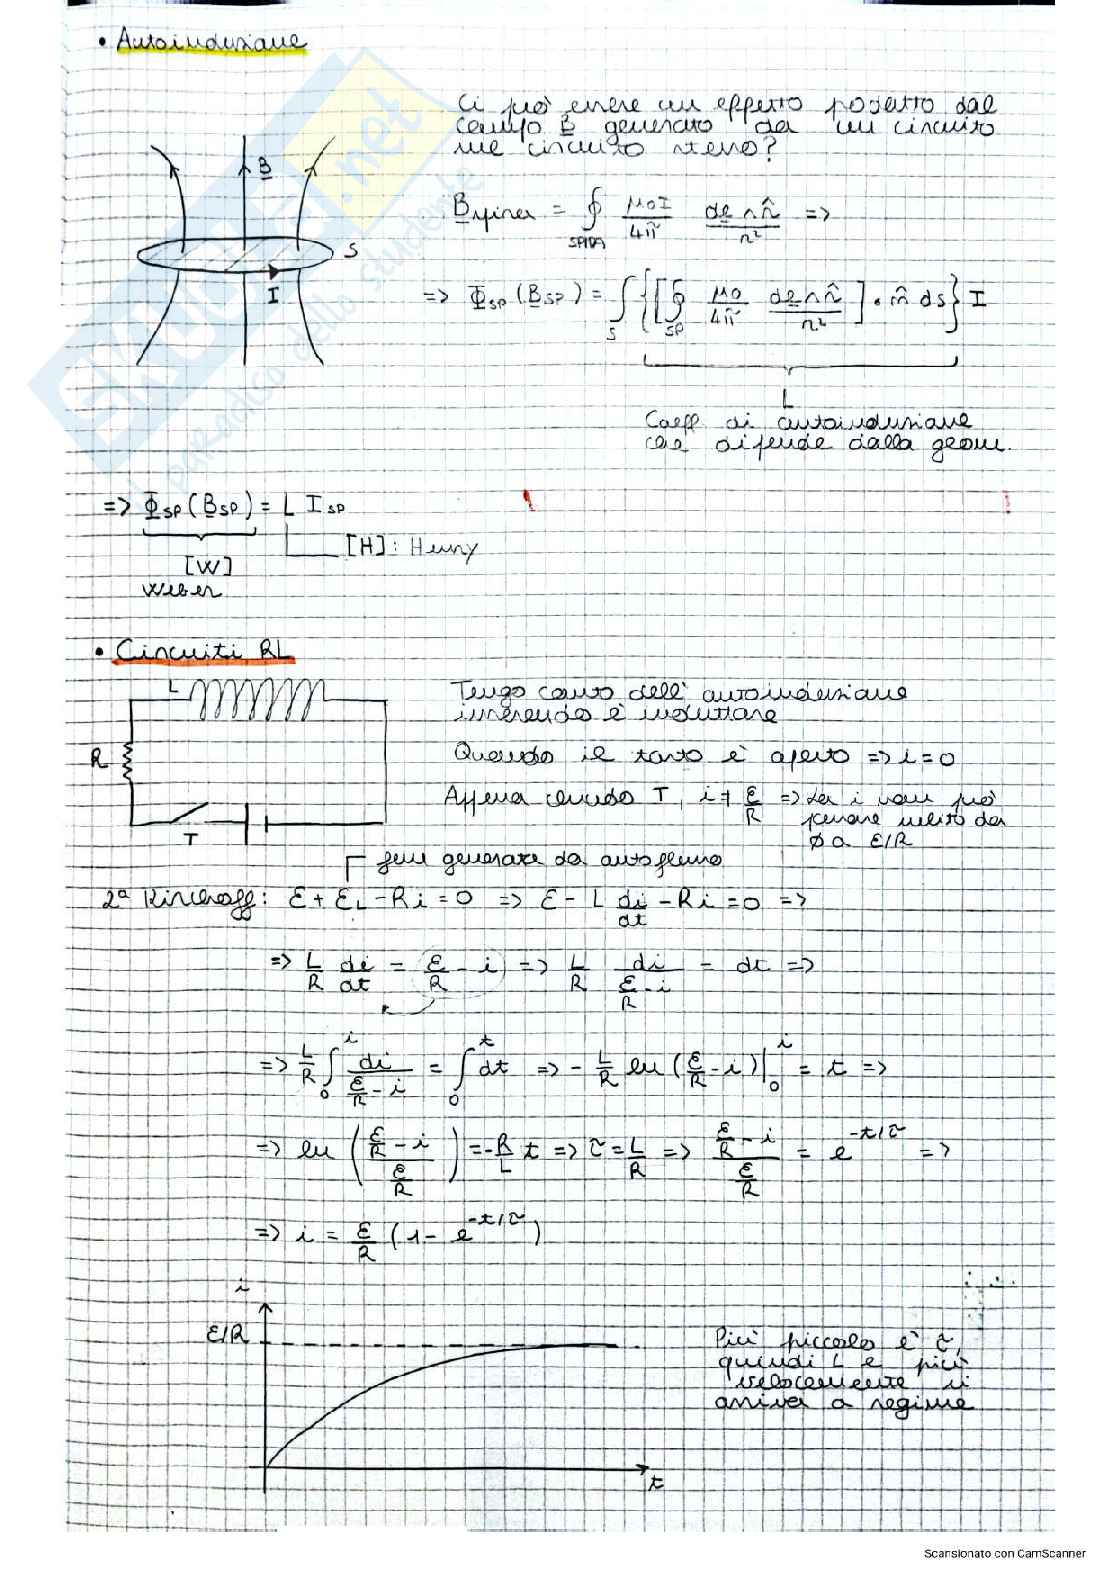 • Autoinduzione
Ci può essere un effetto prodotto dal
campo B generato da un circuito
nel circuito stesso?
B
S
I
B spira = ∮SPIRA μ0I/4π dl∧r̂/r² =>
=> ΦSP (BSP) = ∫S {[∮SP μ0/4π dl∧r̂/r²] • n̂ ds} I
L
Coeff di autoinduzione
che dipende dalla geom.
=> ΦSP (BSP) = L ISP
[H]: Henry
[W]
Weber
• Circuiti RL
L
R
T
Tengo conto dell' autoinduzione
inserendo è induttore
Quando il tasto è aperto => i=0
Appena chiudo T, i ≠ ℰ/R => la i non può
passare subito da
ø a ℰ/R
fem generata da autoflusso
2ª Kirchoff: ℰ + ℰL - Ri = 0 => ℰ - L di/dt - Ri = 0 =>
=> L/R di/dt = ℰ/R - i => L/R di/(ℰ/R - i) = dt =>
=> L/R ∫₀ⁱ di/(ℰ/R - i) = ∫₀ᵗ dt => - L/R ln (ℰ/R - i)|₀ⁱ = t =>
=> ln ((ℰ/R - i)/(ℰ/R)) = -R/L t => τ = L/R => (ℰ/R - i)/(ℰ/R) = e^-t/τ =>
=> i = ℰ/R (1 - e^-t/τ)
i
ℰ/R
t
Più piccolo è τ,
quindi L e più
velocemente si
arriva a regime
SKUOLA.net
il paradiso dello studente
Scansionato con CamScanner